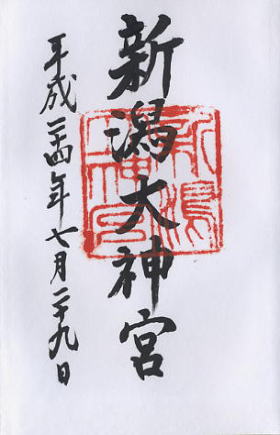 新潟大神宮
新潟大神宮
平成二十四年七月二十九日